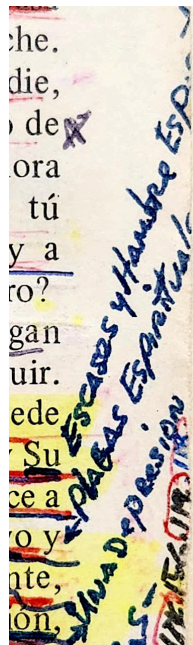 che.
die,
o de
ora
tú
y a
ro?
gan
uir.
ede
Su
ce a
vo y
nte,
ión,
Escasos y Hambre Esp
Plagas Espiritual
Una Depresión